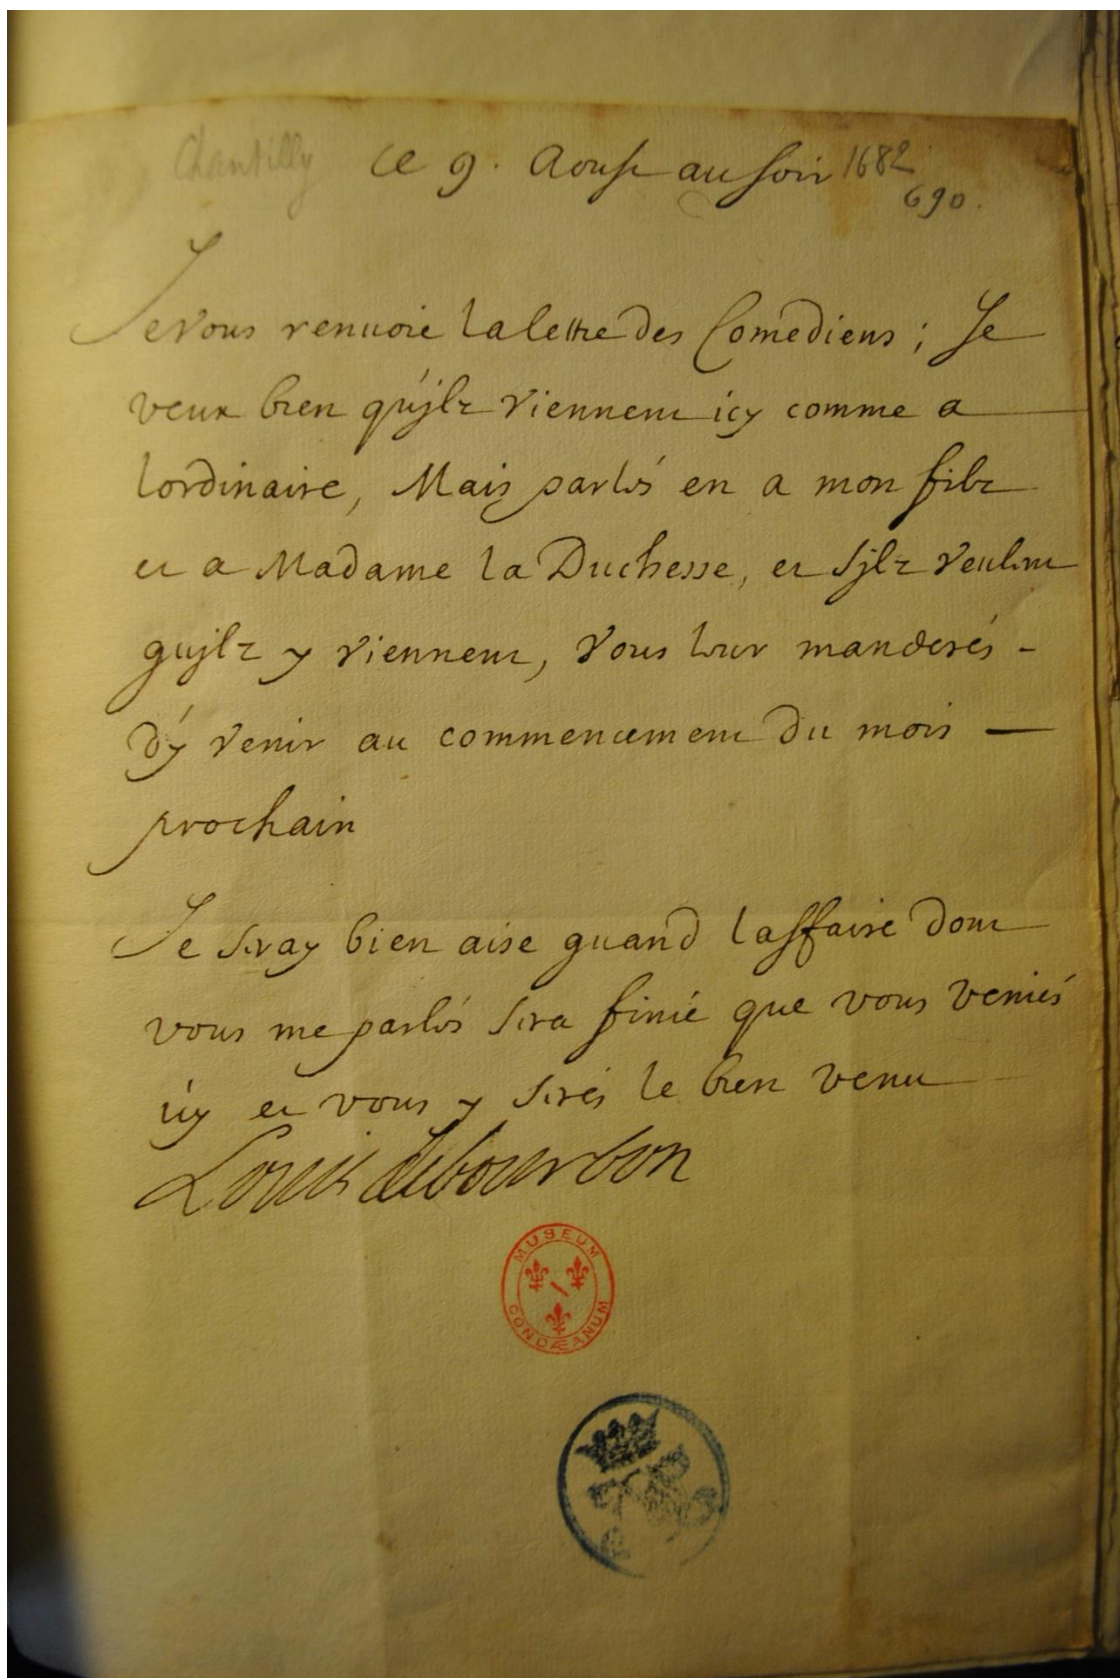 Chantilly ce 9. Aoust au soir 1682
690.
Je vous renuoie la lettre des Comediens ; Je
veux bien qu'jlz viennent icy comme a
lordinaire, Mais parlés en a mon filz
et a Madame la Duchesse, et sjlz veulent
qujlz y viennent, vous leur manderés -
d'y venir au commencement du mois —
prochain
Je seray bien aise quand laffaire dont
vous me parlés sera finie que vous veniés
icy et vous y serés le bien venu
Louis de bourbon
MUSEUM
CONDÆANUM